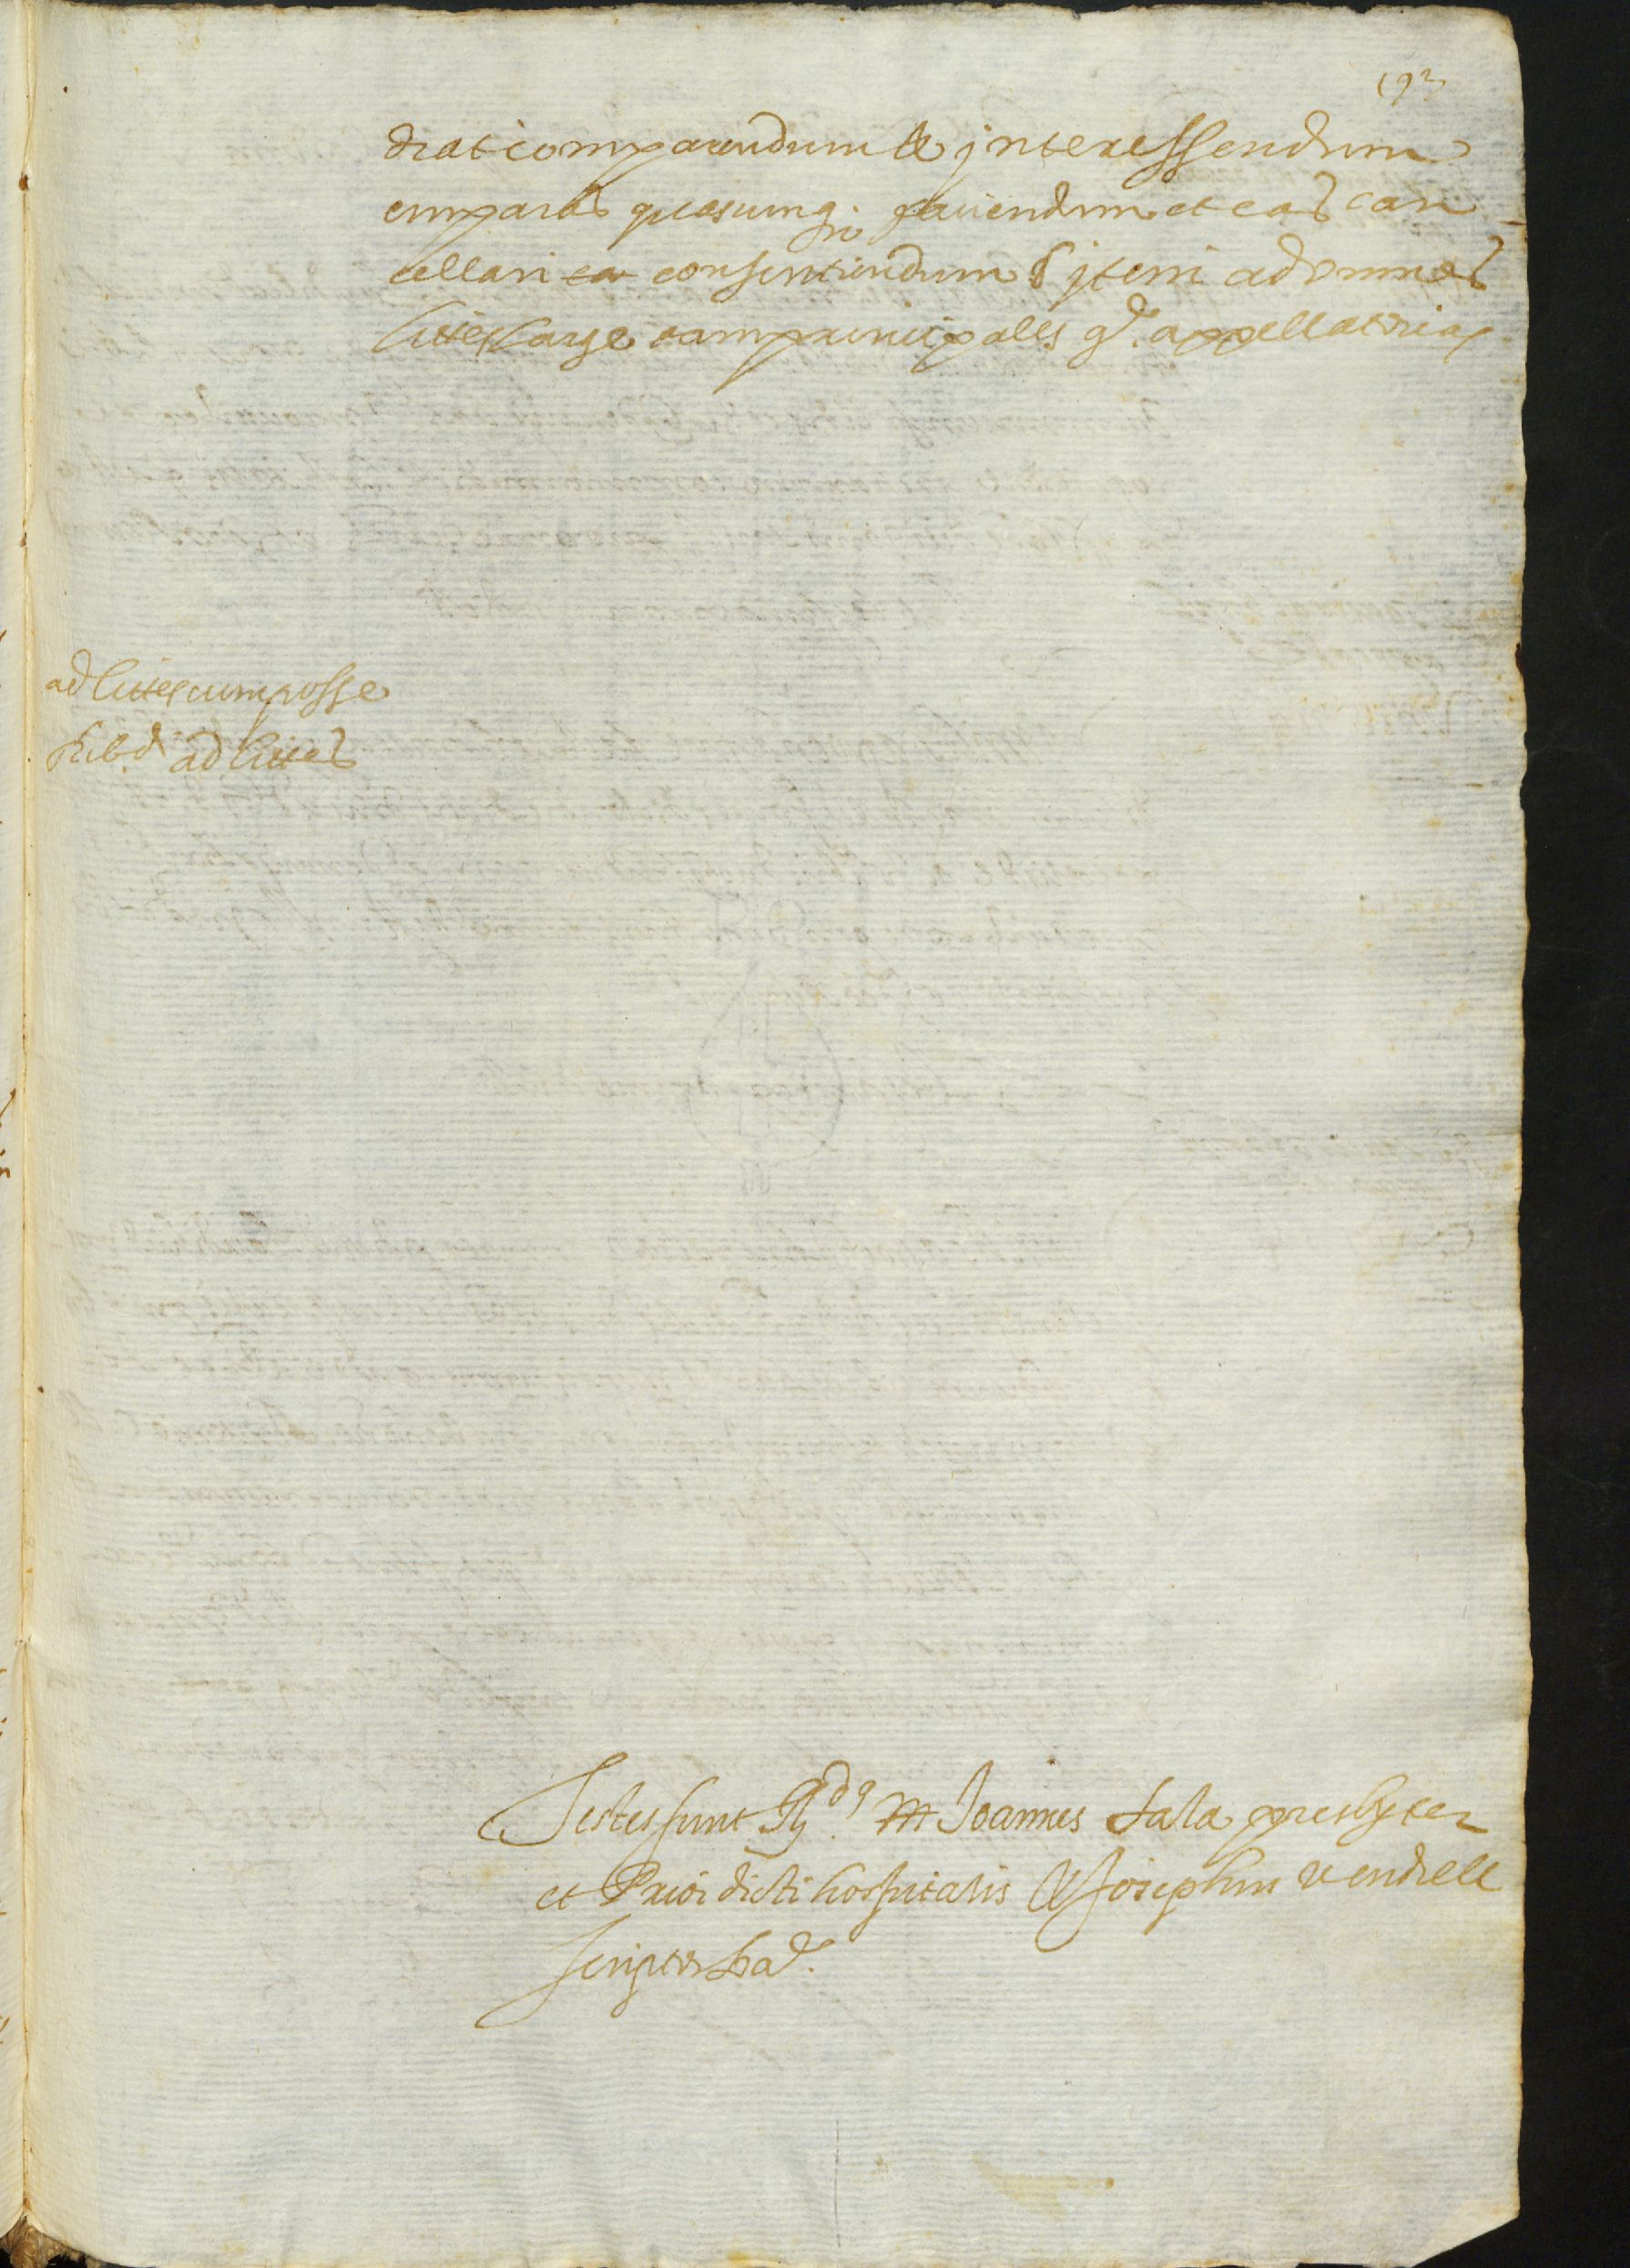 193
diat comparendum & interessendum
emparas quascumq. faciendum et eas can
cellari consentiendum Item ad omnes
lites large tam principales q.ᵐ appellatorias
ad lites cum posse
subd. ad lites
Testes sunt R.dus m Joannes Sala presbyter
et Prior dicti hospitalis & Josephus vendrell
scriptor ba.